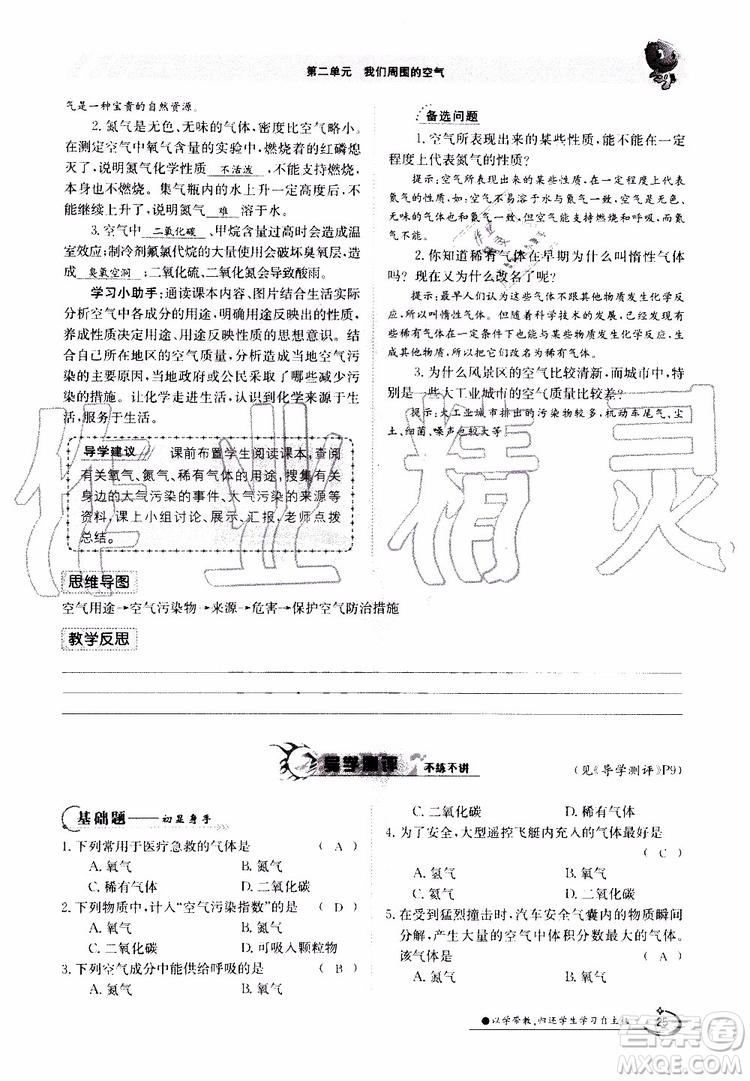 第二单元 我们周围的空气
气是一种宝贵的自然资源。
2. 氮气是无色、无味的气体，密度比空气略小。
在测定空气中氧气含量的实验中，燃烧着的红磷熄
灭了，说明氮气化学性质 不活泼 ，不支持燃烧，
本身也不燃烧。集气瓶内的水上升一定高度后，不
能继续上升，说明氮气 难 溶于水。
3. 空气中 二氧化碳 、甲烷含量上升过高会造成温
室效应；制冷剂氟氯代烷的大量使用会破坏臭氧层，造
成 臭氧空洞 ；二氧化硫、二氧化氮会导致酸雨。
学习小助手：通读课本内容、图片结合生活实际
分析空气中各成分的用途，用途反映出它的性质，
养成性质决定用途、用途反映性质的思想意识。结
合自己所在地区的空气质量，分析当地空气污
染的主要原因，了解政府机关和公民采取的防治污
染的措施。让化学走进生活，认识到化学来源于生
活，服务于生活。
导学建议 课前布置学生阅读课本，查阅
有关氧气、氮气、稀有气体的用途，搜集有关
身边的大气污染的事件、大气污染的来源等
资料，课上小组讨论、展示、汇报，老师点拨
总结。
备选问题
1. 空气所表现出来的某些性质，能不能在一定
程度上代表氮气的性质？
提示：空气所表现出来的某些性质，在一定程度上代表
氮气的性质。如：空气不易溶于水与氮气一致，空气无色、
无味的气体与氮气一致，但空气能支持燃烧和呼吸，而氮
气不能。
2. 你知道稀有气体在早期为什么叫惰性气体
吗？后来又为什么改名了吗？
提示：最早人们认为这些气体不跟其他物质发生化学反
应，所以叫惰性气体。随着科学技术的发展，已经发现有
些稀有气体在一定条件下也能与某些物质发生化学反应，
生成其他物质，所以把它们改名为稀有气体。
3. 为什么风景区的空气比较清新，而城市中，特
别是一些大工业城市的空气质量比较差？
提示：大工业城市排出的污染物较多，机动车尾气、尘
土、细菌、噪声也较大等。
思维导图
空气用途→空气污染物→来源→危害→保护空气防治措施
教学反思
导学测评 不练不讲
（见《导学测评》P9）
基础题——初显身手
1. 下列常用于医疗急救的气体是 （ A ）
A. 氧气 B. 氮气
C. 稀有气体 D. 二氧化碳
2. 下列物质中，计入“空气污染指数”的是 （ D ）
A. 氮气 B. 氧气
C. 二氧化碳 D. 可吸入颗粒物
3. 下列空气成分中能供给呼吸的是 （ B ）
A. 氮气 B. 氧气
C. 二氧化碳 D. 稀有气体
4. 为了安全，大型遥控飞艇内充入的气体最好是
（ C ）
A. 氧气 B. 氢气
C. 氦气 D. 空气
5. 在受到猛烈撞击时，汽车安全气囊内的物质瞬间
分解，产生大量的空气中体积分数最大的气体。
该气体是 （ A ）
A. 氮气 B. 氧气
C. 二氧化碳 D. 稀有气体
●以学带教，归还学生学习自主权
25
作业精灵
答案圈
MXQE.COM